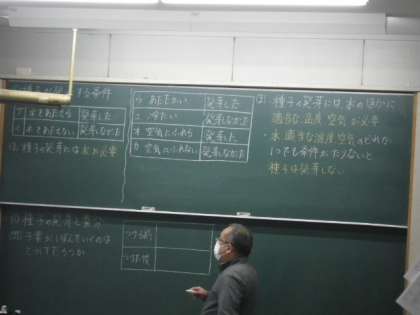 種子が発芽する条件
ア 水をあたえる 発芽した
イ 水をあたえない 発芽しなかった
種子の発芽には水が必要
ウ あたたかい 発芽した
エ 冷たい 発芽しなかった
オ 空気にふれる 発芽した
カ 空気にふれない 発芽しなかった
種子の発芽には水のほかに
適当な温度 空気が必要
・水 適当な温度 空気のどれか
1つでも条件がたりないと
種子は発芽しない
種子の発芽と養分
子葉がしぼんでいくのは
どうしてだろうか
つける前
つけた後